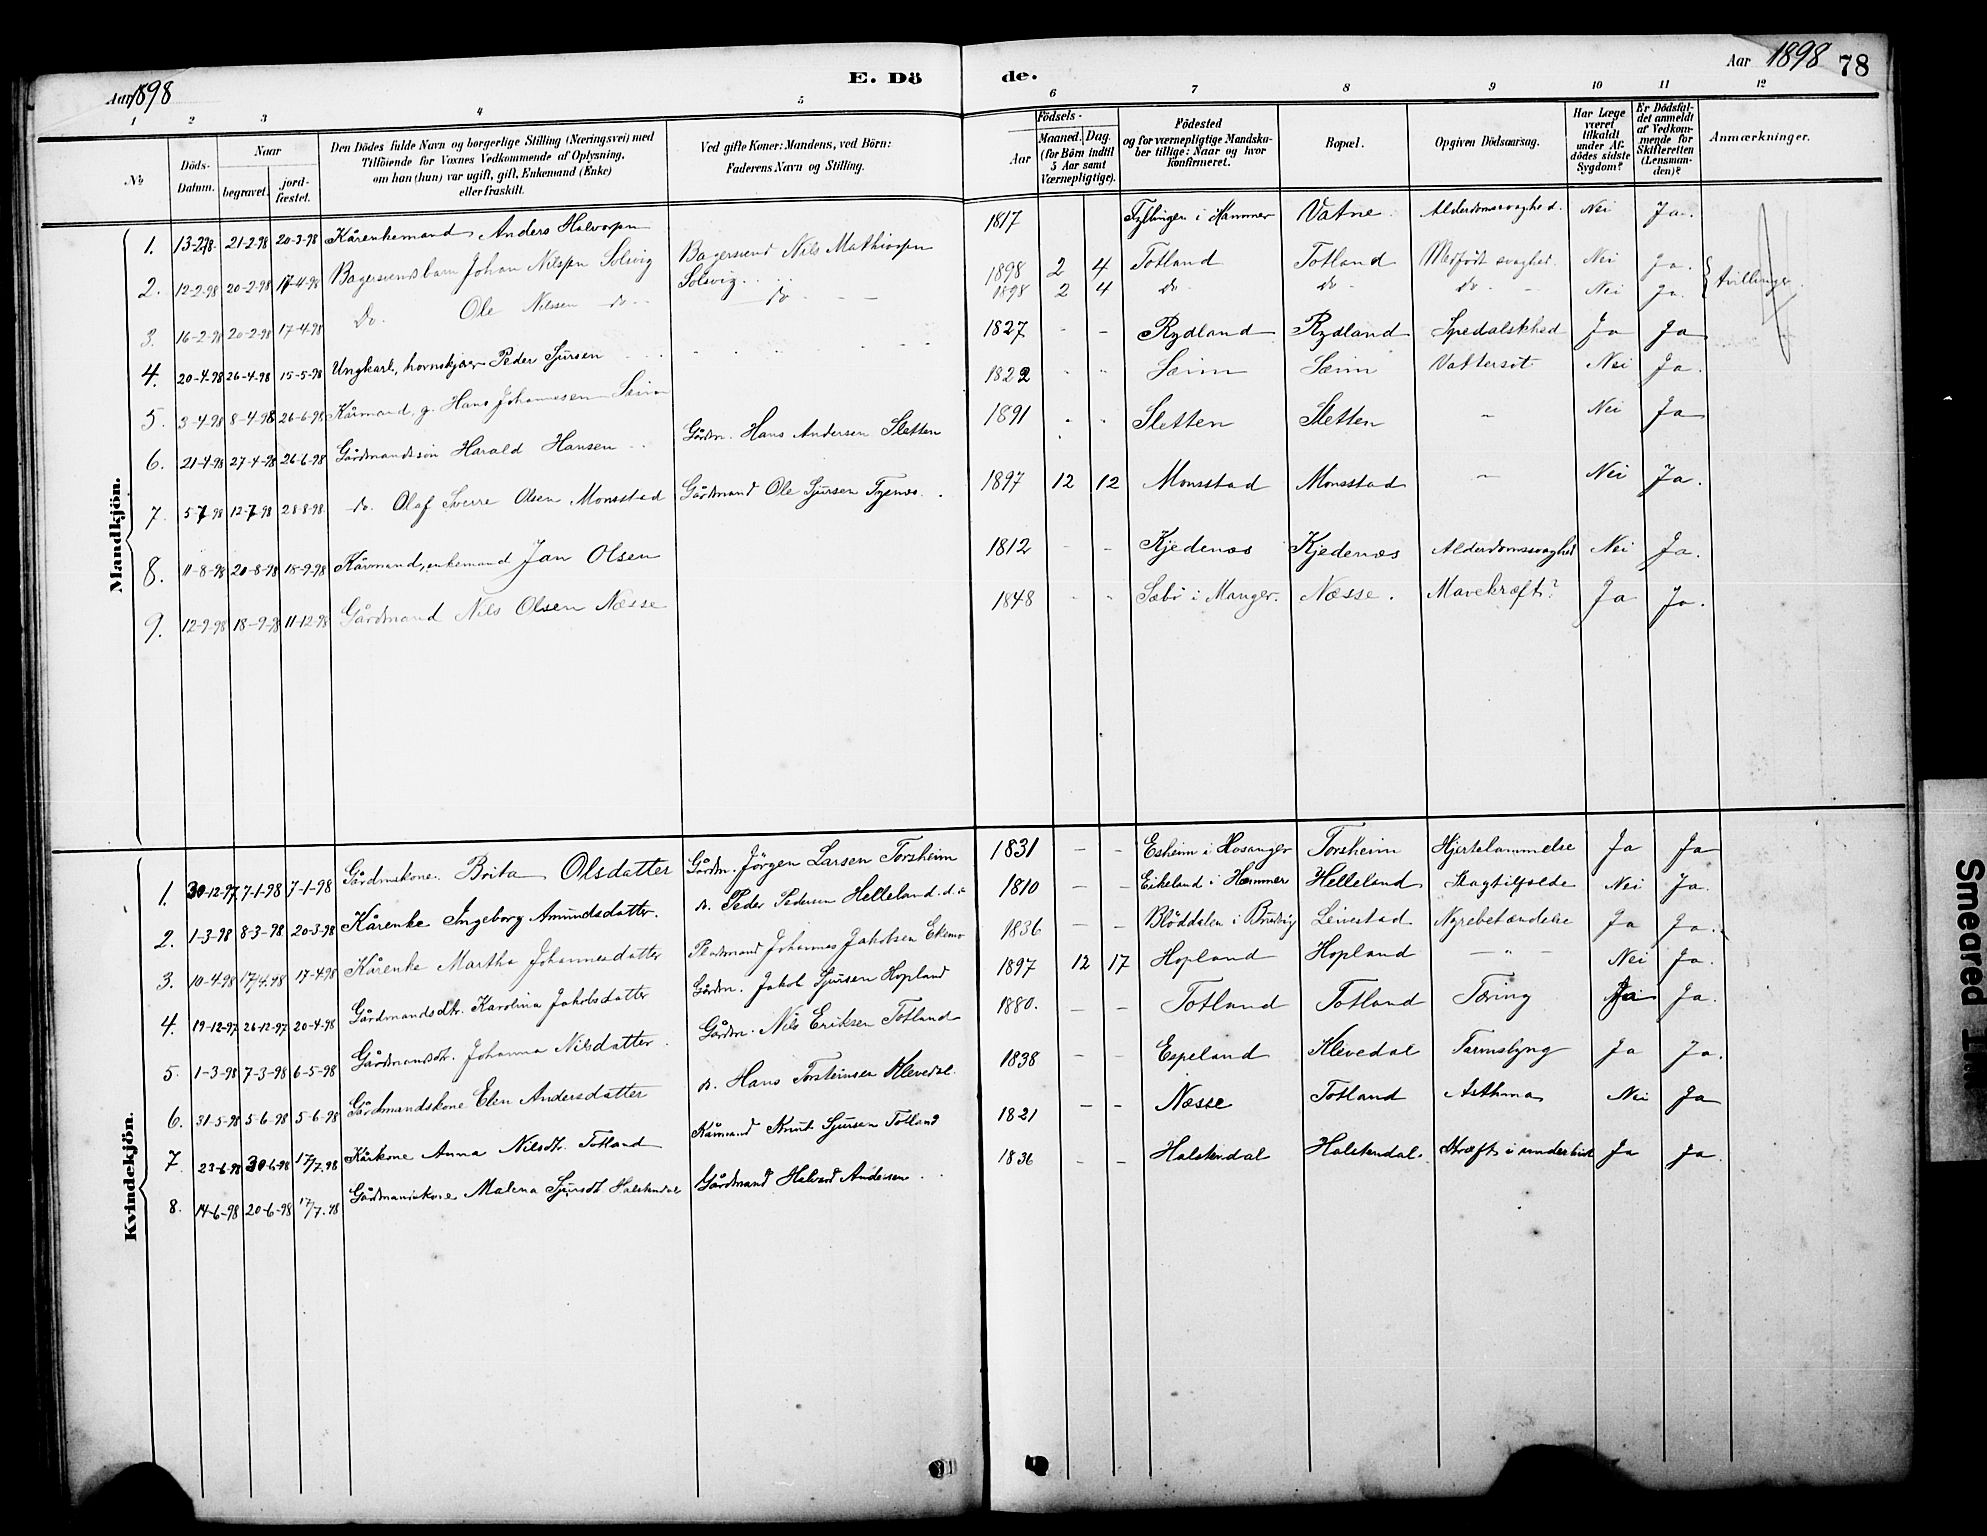 Aar 1898
E. Döde.
Aar 1898
78
1 2 3 4 5 6 7 8 9 10 11 12
No
Döds-Datum.
Naar
begravet.
jord-fæstet.
Den Dödes fulde Navn og borgerlige Stilling (Næringsvei) med Tilföiende for Voxnes Vedkommende af Oplysning, om han (hun) var ugift, gift, Enkemand (Enke) eller fraskilt.
Ved gifte Koner: Mandens, ved Börn: Faderens Navn og Stilling.
Födsels-
Aar
Maaned. Dag.
(for Börn indtil 5 Aar samt Værnepligtige).
Födested og for værnepligtige Mandskaber tillige: Naar og hvor konfirmeret.
Bopæl.
Opgiven Dödsaarsag.
Har Læge været tilkaldt under Afdödes sidste Sygdom?
Er Dödsfaldet anmeldt af Vedkommende for Skifteretten (Lensmanden)?
Anmærkninger.
Mandkjön.
1. 13-2-98 21-2-98 20-3-98 Kårenkemand Anders Halvorsen 1817 Fyllingen i Hammer Vatne Alderdomssvaghed. Nei Ja.
2. 12-2-98 20-2-98 17-4-98 Bagersvendsbarn Johan Nilsen Solvig Bagersvend Nils Mathiassen Solsvig 1898 2 4 Totland Totland Medfødt svaghed. Nei Ja. Tvillinger.
3. 16-2-98 20-2-98 17-4-98 Do. Ole Nilssen do - do - 1898 2 4 do do do Nei Ja.
4. 20-4-98 26-4-98 15-5-98 Ungkarl, Peder Sjursen 1827 - - Rydland Rydland Spedalskhed Ja Ja
5. 3-4-98 8-4-98 26-6-98 Kårmand, g. Hans Johannesen Seim 1822 " " Seim Seim Vattersot Nei Ja.
6. 21-4-98 27-4-98 26-6-98 Gårdmandssøn Harald Hansen Gårdm. Hans Andersen Sletten 1891 Sletten Sletten - Nei Ja
7. 5-7-98 12-7-98 28-8-98 do. Olaf Sverre Olsen Monsstad Gårdmand Ole Sjursen 1897 12 12 Monsstad Monsstad - Nei Ja.
8. 11-8-98 20-8-98 18-9-98 Kårmand, enkemand Jan Olsen 1812 - - Kjedenæs Kjedenæs Alderdomssvaghed Nei Ja.
9. 12-9-98 18-9-98 11-12-98 Gårdmand Nils Olsen Næsse 1848 - - Sæbø i Manger. Næsse. Mavekræft? Ja Ja.
Kvindekjön.
1. 30-12-97 7-1-98 7-1-98 Gårdmskone. Brita Olsdatter Gårdm. Jörgen Larsen Torsheim 1831 - - Esheim i Hosanger Torsheim Hjertelammelse Ja Ja
2. 1-3-98 8-3-98 20-3-98 Kårenke Ingeborg Amundsdatter. do. Peder Pedersen Helleland 1810 - - Eikeland i Hammer Helleland Slagtilfælde Nei Ja.
3. 10-4-98 17/4.98 17-4-98 Kårenke Martha Johannesdatter Johannes Jakobsen 1836 - - Blöddalen i Leivestad Nyrebetændelse Ja Ja.
4. 19-12-97 26-12-97 20-4-98 Gårdmandsdtr. Karolina Jakobsdatter Gårdm. Jakob Sjursen Hopland 1897 12 17 Hopland Hopland - " - Nei Ja.
5. 1-3-98 7-3-98 6-5-98 Gårdmandsdt. Johanna Nilsdatter. Gårdm. Nils Eriksen Totland 1880. - - Totland Totland Tæring Ja Ja.
6. 31-5-98 5-6-98 5-6-98 Gårdmandskone Elen Andersdatter do. Hans Torsteinsen Klevedal. 1838 - - Espeland Klevedal Tarmslyng Ja Ja.
7. 23-6-98 30-6-98 17/7.98 Kårkone Anna Nilsdt. Totland Kårmand Knut Sjursen Totland 1821 - - Næsse Totland Asthma Nei Ja
8. 14-6-98 20-6-98 17/7.98 Gårdmandskone Malena Sjursdt. Halstendal Gårdmand Halvard Andersen 1836 - - Halstendal Halstendal. Kræft i underlivet Ja Ja.
Smeared